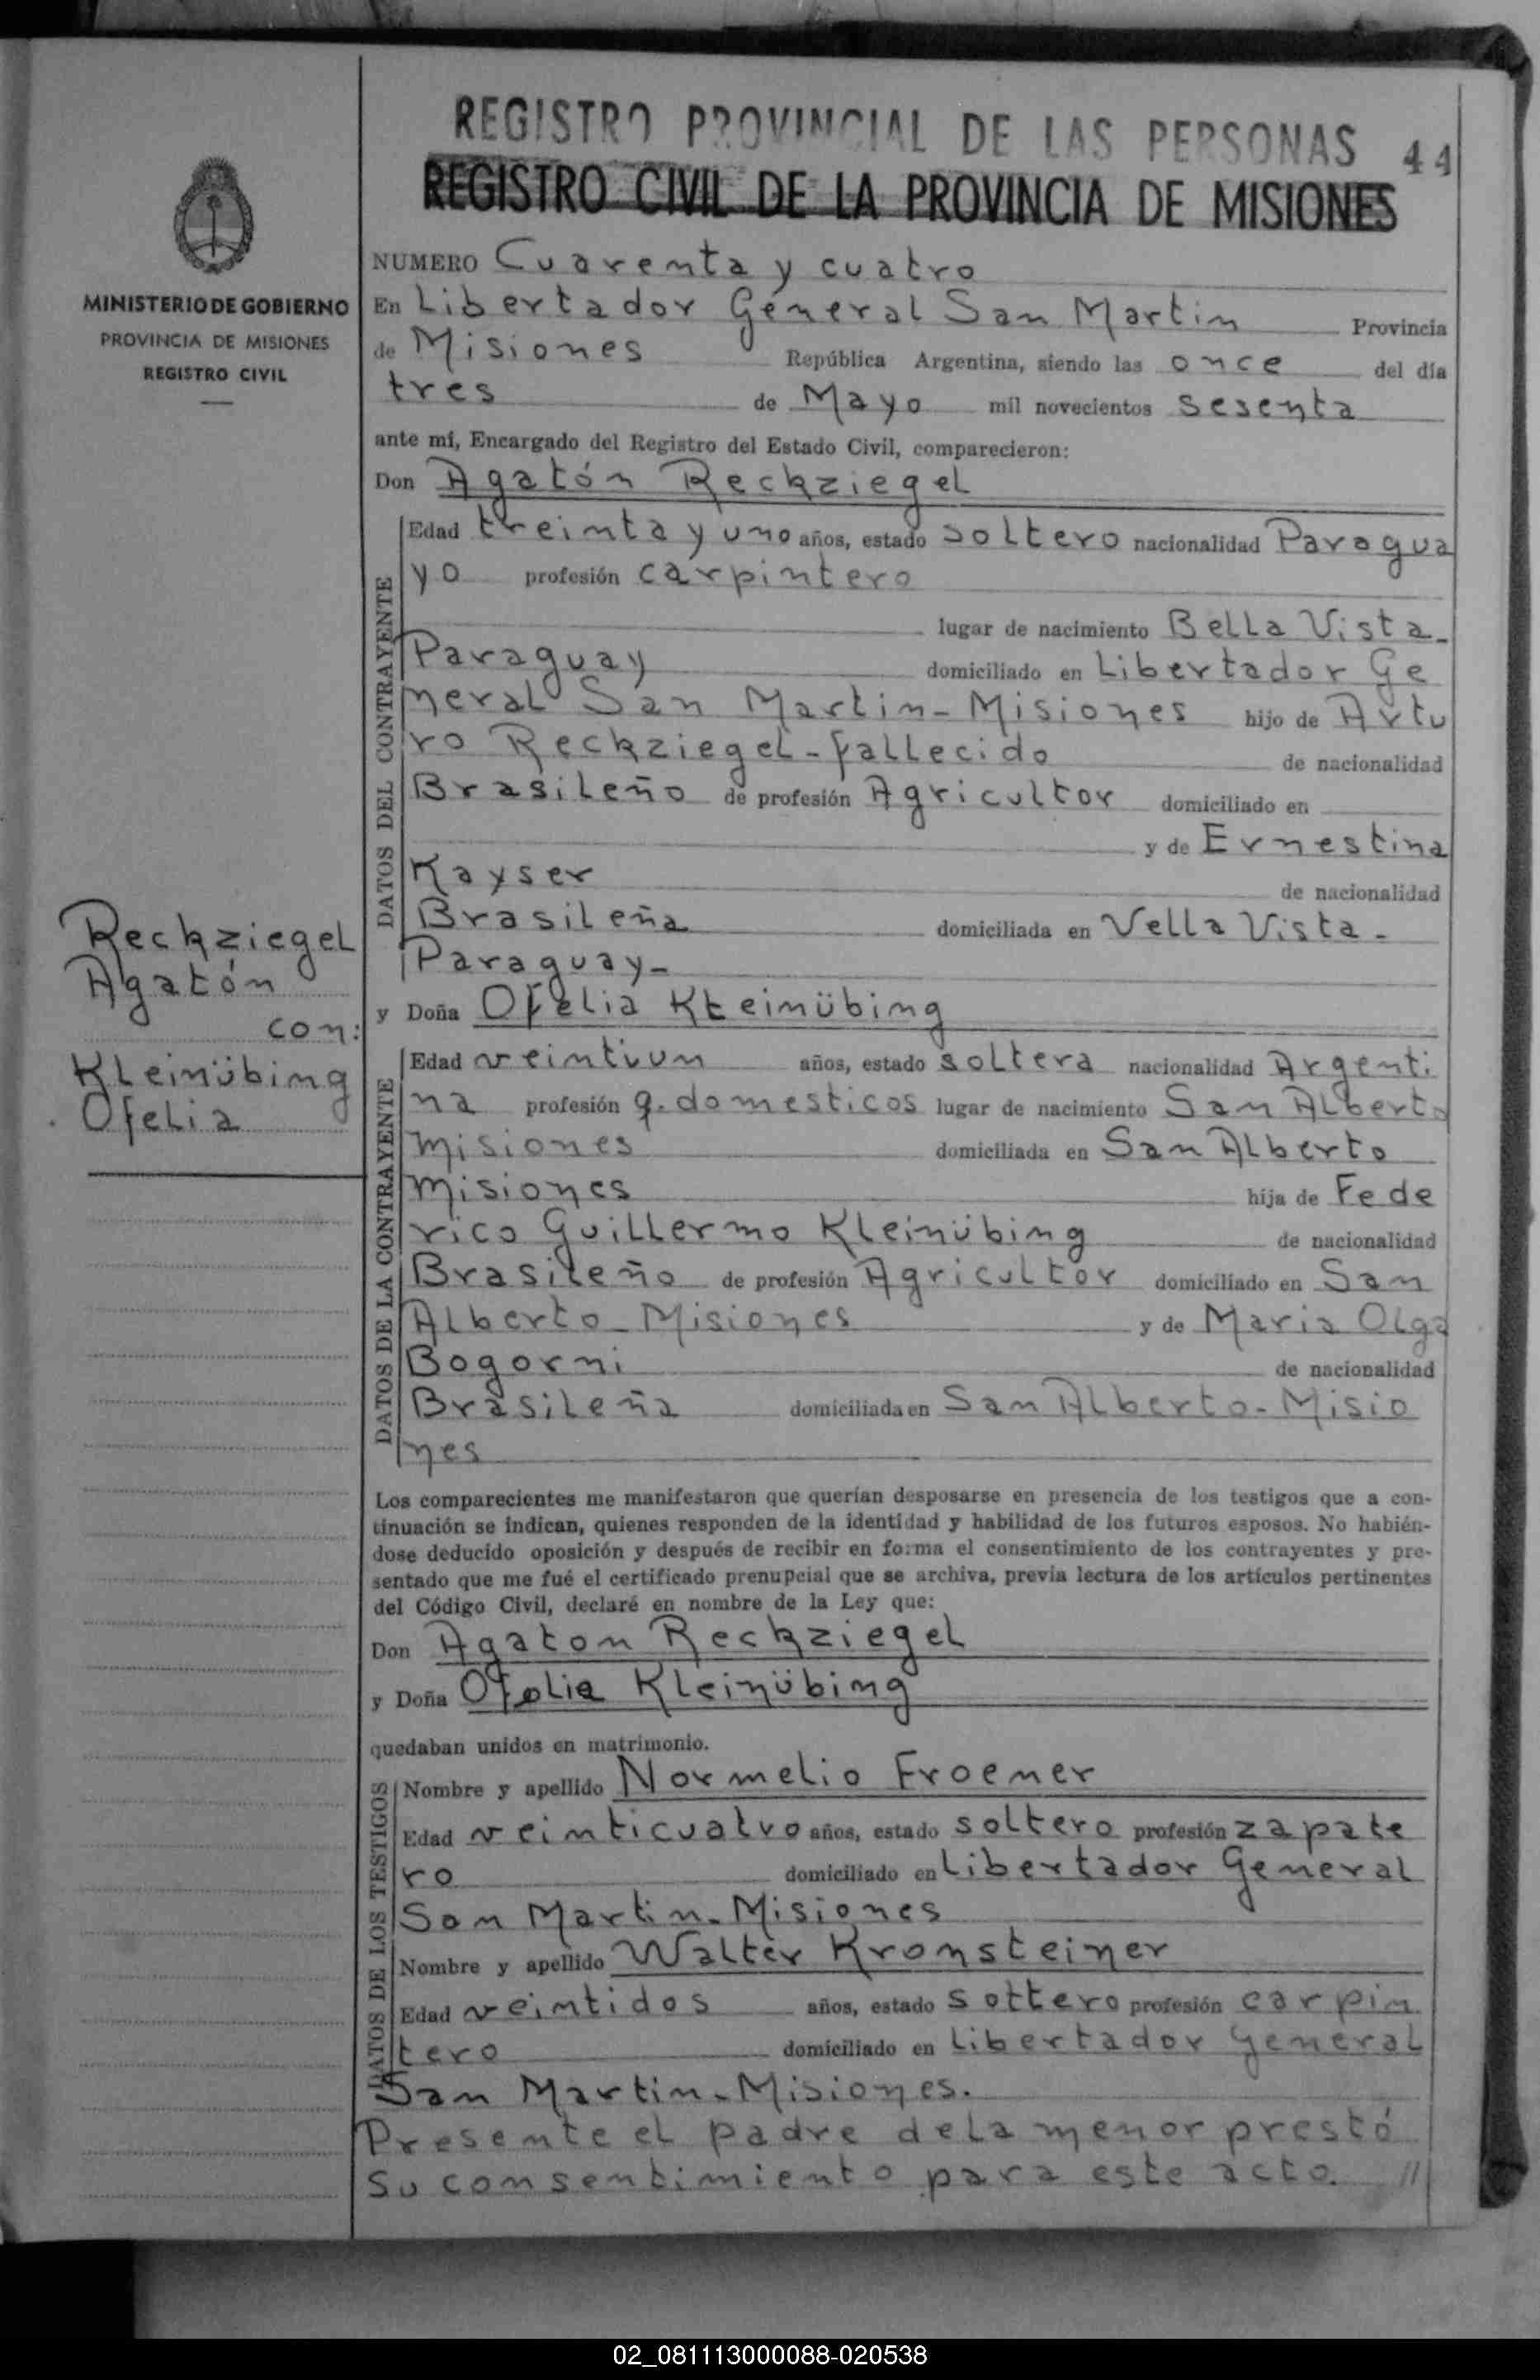 REGISTRO PROVINCIAL DE LAS PERSONAS 44
REGISTRO CIVIL DE LA PROVINCIA DE MISIONES
MINISTERIO DE GOBIERNO
PROVINCIA DE MISIONES
REGISTRO CIVIL
NUMERO Cuarenta y cuatro
En Libertador General San Martin Provincia
de Misiones República Argentina, siendo las once del día
tres de Mayo mil novecientos sesenta
ante mí, Encargado del Registro del Estado Civil, comparecieron:
Don Agatón Reckziegel
DATOS DEL CONTRAYENTE
Edad treinta y uno años, estado soltero nacionalidad Paragua
yo profesión carpintero
lugar de nacimiento Bella Vista-
Paraguay domiciliado en Libertador Ge
neral San Martin-Misiones hijo de Artu
ro Reckziegel-fallecido de nacionalidad
Brasileño de profesión Agricultor domiciliado en
y de Ernestina
Kayser de nacionalidad
Brasileña domiciliada en Vella Vista-
Paraguay-
Reckziegel
Agatón
con:
Kleinübing
Ofelia
y Doña Ofelia Kleinübing
DATOS DE LA CONTRAYENTE
Edad veintiun años, estado soltera nacionalidad Argenti
na profesión q. domesticos lugar de nacimiento San Alberto
misiones domiciliada en San Alberto
misiones hija de Fede
rico Guillermo Kleinübing de nacionalidad
Brasileño de profesión Agricultor domiciliado en San
Alberto-Misiones y de Maria Olga
Bogorni de nacionalidad
Brasileña domiciliada en San Alberto-Misio
nes
Los comparecientes me manifestaron que querían desposarse en presencia de los testigos que a con-
tinuación se indican, quienes responden de la identidad y habilidad de los futuros esposos. No habién-
dose deducido oposición y después de recibir en forma el consentimiento de los contrayentes y pre-
sentado que me fué el certificado prenupcial que se archiva, previa lectura de los artículos pertinentes
del Código Civil, declaré en nombre de la Ley que:
Don Agaton Reckziegel
y Doña Ofelia Kleinübing
quedaban unidos en matrimonio.
DATOS DE LOS TESTIGOS
Nombre y apellido Normelio Froemer
Edad veinticuatro años, estado soltero profesión zapate
ro domiciliado en Libertador General
San Martin-Misiones
Nombre y apellido Walter Kronsteiner
Edad veintidos años, estado soltero profesión carpin
tero domiciliado en Libertador General
San Martin-Misiones.
Presente el padre de la menor prestó
su consentimiento para este acto. //
02_081113000088-020538